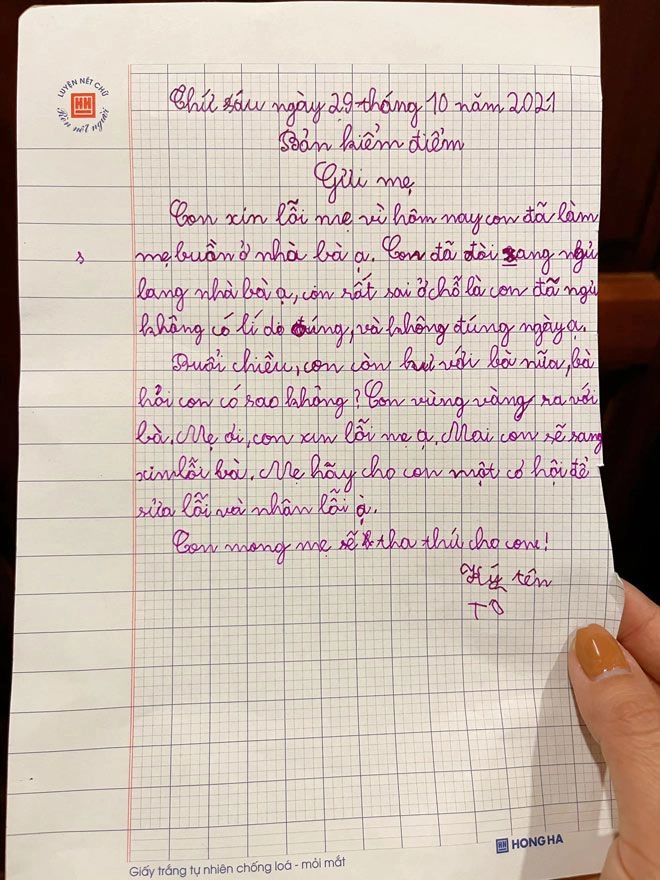 LUYỆN NÉT CHỮ
HH
Rèn nết người
Thứ sáu ngày 29 tháng 10 năm 2021
Bản kiểm điểm
Gửi mẹ
Con xin lỗi mẹ vì hôm nay con đã làm
s
mẹ buồn ở nhà bà ạ. Con đã đòi sang ngủ
lang nhà bà ạ, con rất sai ở chỗ là con đã ngủ
không có lí do đúng, và không đúng ngày ạ.
Buổi chiều, con còn hư với bà nữa, bà
hỏi con có sao không? Con vùng vàng ra với
bà. Mẹ ơi, con xin lỗi mẹ ạ. Mai con sẽ sang
xin lỗi bà. Mẹ hãy cho con một cơ hội để
sửa lỗi và nhân lỗi ạ.
Con mong mẹ sẽ tha thứ cho con!
Ký tên
Giấy trắng tự nhiên chống loá - mỏi mắt
HH HONG HA